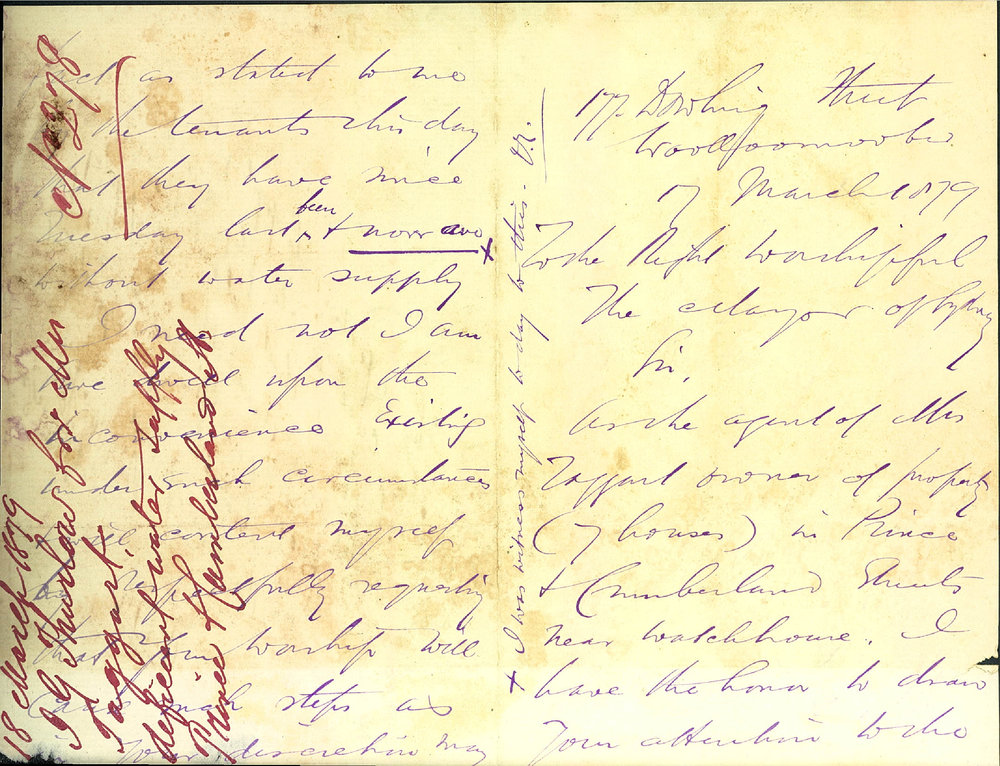 177 Dowling Street
Woolloomooloo
17 March 1879
To the Right Worshipful
The Mayor of Sydney
Sir,
As the agent of Mrs
Taggart owner of property
(7 houses) in Prince
& Cumberland Streets
near watchhouse. I
have the honor to draw
Your attention to the
fact as stated to me
the tenants this day
that they have since
Tuesday last been & now are +
without water supply
I need not I am
sure dwell upon the
inconvenience Existing
under such circumstances
& will content myself
by respectfully requesting
that Your Worship will
cause such steps as
in Your discretion may
+ I was witness myself to day to this -
No 278
18 March 1879
for Mrs
Taggart
deficient water supply
Prince & Cumberland Sts